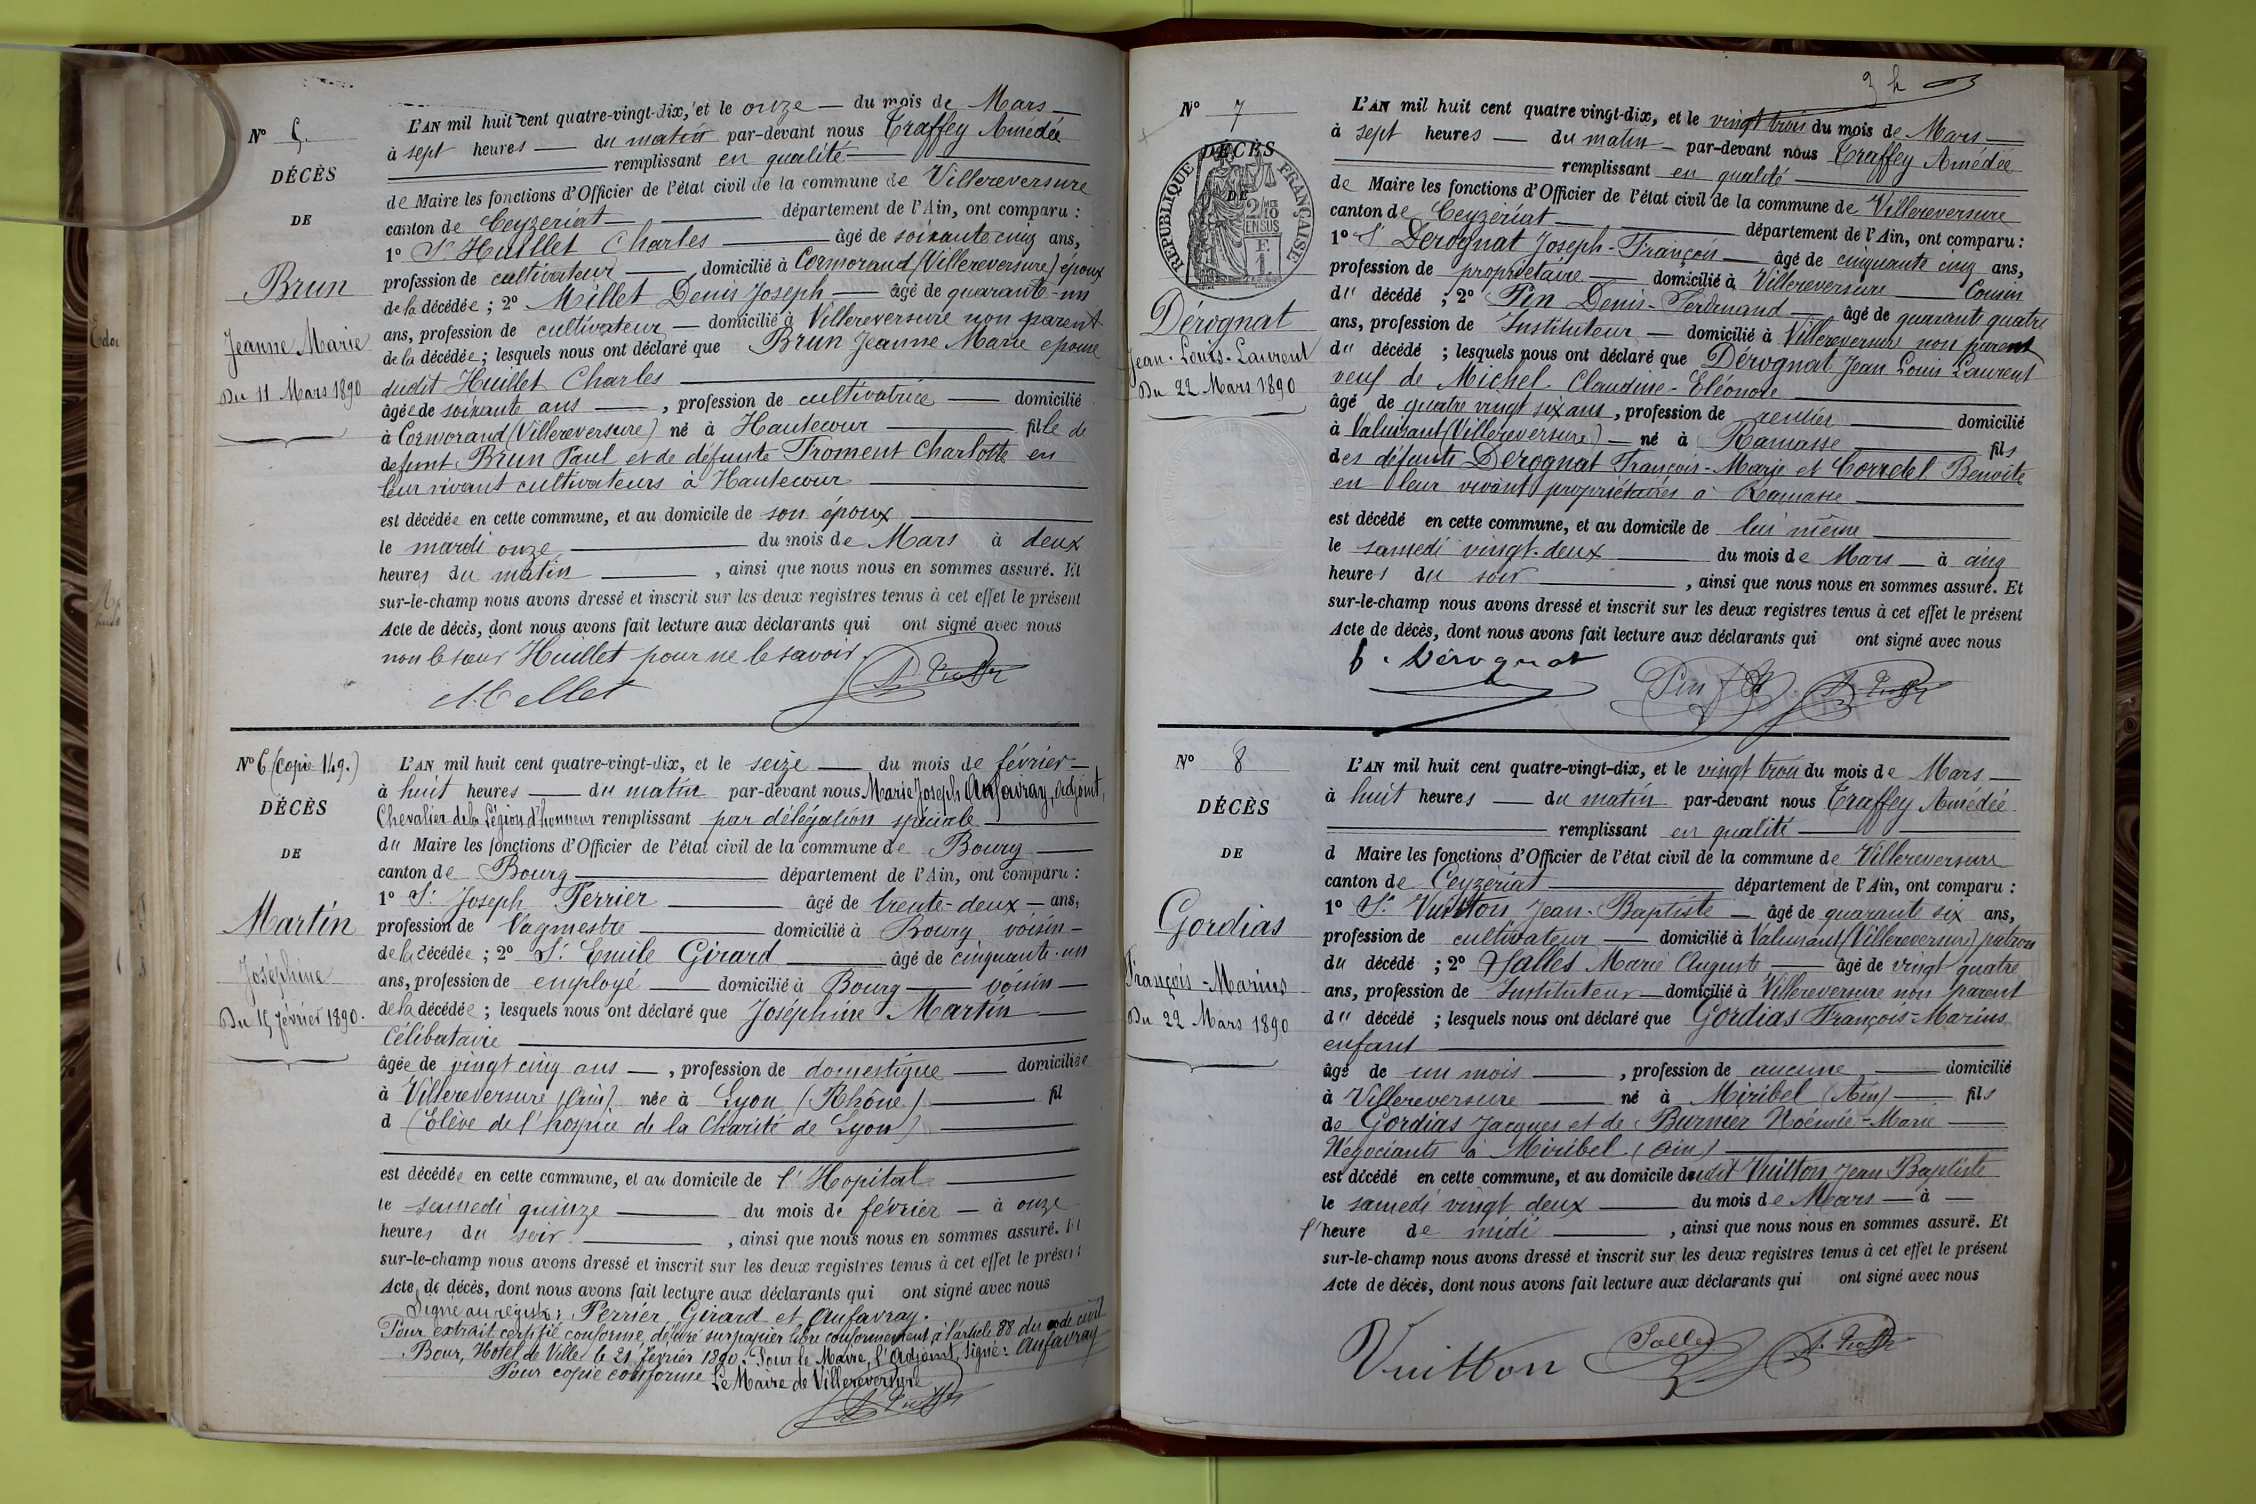 N° 5.
DÉCÈS
DE
Brun
Jeanne Marie
Du 11 Mars 1890
L'AN mil huit cent quatre-vingt-dix, et le onze du mois de Mars
à sept heures du matin par-devant nous Traffey Amédée
remplissant en qualité
de Maire les fonctions d'Officier de l'état civil de la commune de Villereversure
canton de Ceyzériat département de l'Ain, ont comparu :
1° Sr Huillet Charles âgé de soixante cinq ans,
profession de cultivateur domicilié à Cormorand (Villereversure) époux
de la décédée ; 2° Millet Denis Joseph âgé de quarante-un
ans, profession de cultivateur domicilié à Villereversure non parent
de la décédée ; lesquels nous ont déclaré que Brun Jeanne Marie épouse
dudit Huillet Charles
âgée de soixante ans , profession de cultivatrice domicilié
à Cormorand (Villereversure) né à Hautecour fille de
defunt Brun Paul et de défunte Froment Charlotte en
leur vivant cultivateurs à Hautecour
est décédée en cette commune, et au domicile de son époux
le mardi onze du mois de Mars à deux
heures du matin , ainsi que nous nous en sommes assuré. Et
sur-le-champ nous avons dressé et inscrit sur les deux registres tenus à cet effet le présent
Acte de décès, dont nous avons fait lecture aux déclarants qui ont signé avec nous
non le sieur Huillet pour ne le savoir.
Millet
N° 6 (copie 149.)
DÉCÈS
DE
Martin
Joséphine
Du 15 février 1890.
L'AN mil huit cent quatre-vingt-dix, et le seize du mois de février
à huit heures du matin par-devant nous Marie Joseph Aufavray, adjoint,
Chevalier de la Légion d'honneur remplissant par délégation spéciale
du Maire les fonctions d'Officier de l'état civil de la commune de Bourg
canton de Bourg département de l'Ain, ont comparu :
1° Sr Joseph Perrier âgé de trente-deux ans,
profession de Vagmestre domicilié à Bourg voisin
de la décédée ; 2° Sr Emile Girard âgé de cinquante-un
ans, profession de employé domicilié à Bourg voisin
de la décédée ; lesquels nous ont déclaré que Joséphine Martin
Célibataire
âgée de vingt cinq ans , profession de domestique domiciliée
à Villereversure (Ain) née à Lyon (Rhône) fil
d (Elève de l'hospice de la Charité de Lyon)
est décédée en cette commune, et au domicile de l'Hopital
le samedi quinze du mois de février à onze
heures du soir , ainsi que nous nous en sommes assuré. Et
sur-le-champ nous avons dressé et inscrit sur les deux registres tenus à cet effet le présent
Acte de décès, dont nous avons fait lecture aux déclarants qui ont signé avec nous
Signé au registre : Perrier, Girard et Aufavray.
Pour extrait certifié conforme, délivré sur papier libre conformément à l'article 88 du code civil
Bour, Hôtel de Ville, le 21 février 1890. Pour le Maire, l'Adjoint, Signé : Aufavray
Pour copie conforme Le Maire de Villereversure
N° 7
DÉCÈS
DE
RÉPUBLIQUE FRANÇAISE
2/10 EN SUS
F. 1.
Dérognat
Jean-Louis-Laurent
Du 22 Mars 1890
L'AN mil huit cent quatre vingt-dix, et le vingt trois du mois de Mars
à sept heures du matin par-devant nous Traffey Amédée
remplissant en qualité
de Maire les fonctions d'Officier de l'état civil de la commune de Villereversure
canton de Ceyzériat département de l'Ain, ont comparu :
1° Sr Derognat Joseph-François âgé de cinquante cinq ans,
profession de propriétaire domicilié à Villereversure Cousin
du décédé ; 2° Pin Denis-Ferdinand âgé de quarante quatre
ans, profession de Instituteur domicilié à Villereversure non parent
du décédé ; lesquels nous ont déclaré que Dérognat Jean Louis Laurent
veuf de Michel Claudine-Eléonore
âgé de quatre vingt six ans , profession de rentier domicilié
à Valuisant (Villereversure) né à Ramasse fils
des défunts Derognat François-Marie et Corretel Benoite
en leur vivant propriétaires à Ramasse
est décédé en cette commune, et au domicile de lui même
le samedi vingt-deux du mois de Mars à cinq
heures du soir , ainsi que nous nous en sommes assuré. Et
sur-le-champ nous avons dressé et inscrit sur les deux registres tenus à cet effet le présent
Acte de décès, dont nous avons fait lecture aux déclarants qui ont signé avec nous
Dérognat Pin
N° 8
DÉCÈS
DE
Gordias
François-Marius
Du 22 Mars 1890
L'AN mil huit cent quatre-vingt-dix, et le vingt trois du mois de Mars
à huit heures du matin par-devant nous Traffey Amédée
remplissant en qualité
d Maire les fonctions d'Officier de l'état civil de la commune de Villereversure
canton de Ceyzériat département de l'Ain, ont comparu :
1° Sr Vuitton Jean-Baptiste âgé de quarante six ans,
profession de cultivateur domicilié à Valuisant (Villereversure) patron
du décédé ; 2° Salles Marie Auguste âgé de vingt quatre
ans, profession de Instituteur domicilié à Villereversure non parent
du décédé ; lesquels nous ont déclaré que Gordias François-Marius
enfant
âgé de un mois , profession de aucune domicilié
à Villereversure né à Miribel (Ain) fils
de Gordias Jacques et de Burnier Noémie-Marie
Négociants à Miribel (Ain)
est décédé en cette commune, et au domicile dudit Vuitton Jean Baptiste
le samedi vingt deux du mois de Mars à
l'heure de midi , ainsi que nous nous en sommes assuré. Et
sur-le-champ nous avons dressé et inscrit sur les deux registres tenus à cet effet le présent
Acte de décès, dont nous avons fait lecture aux déclarants qui ont signé avec nous
Vuitton Salles